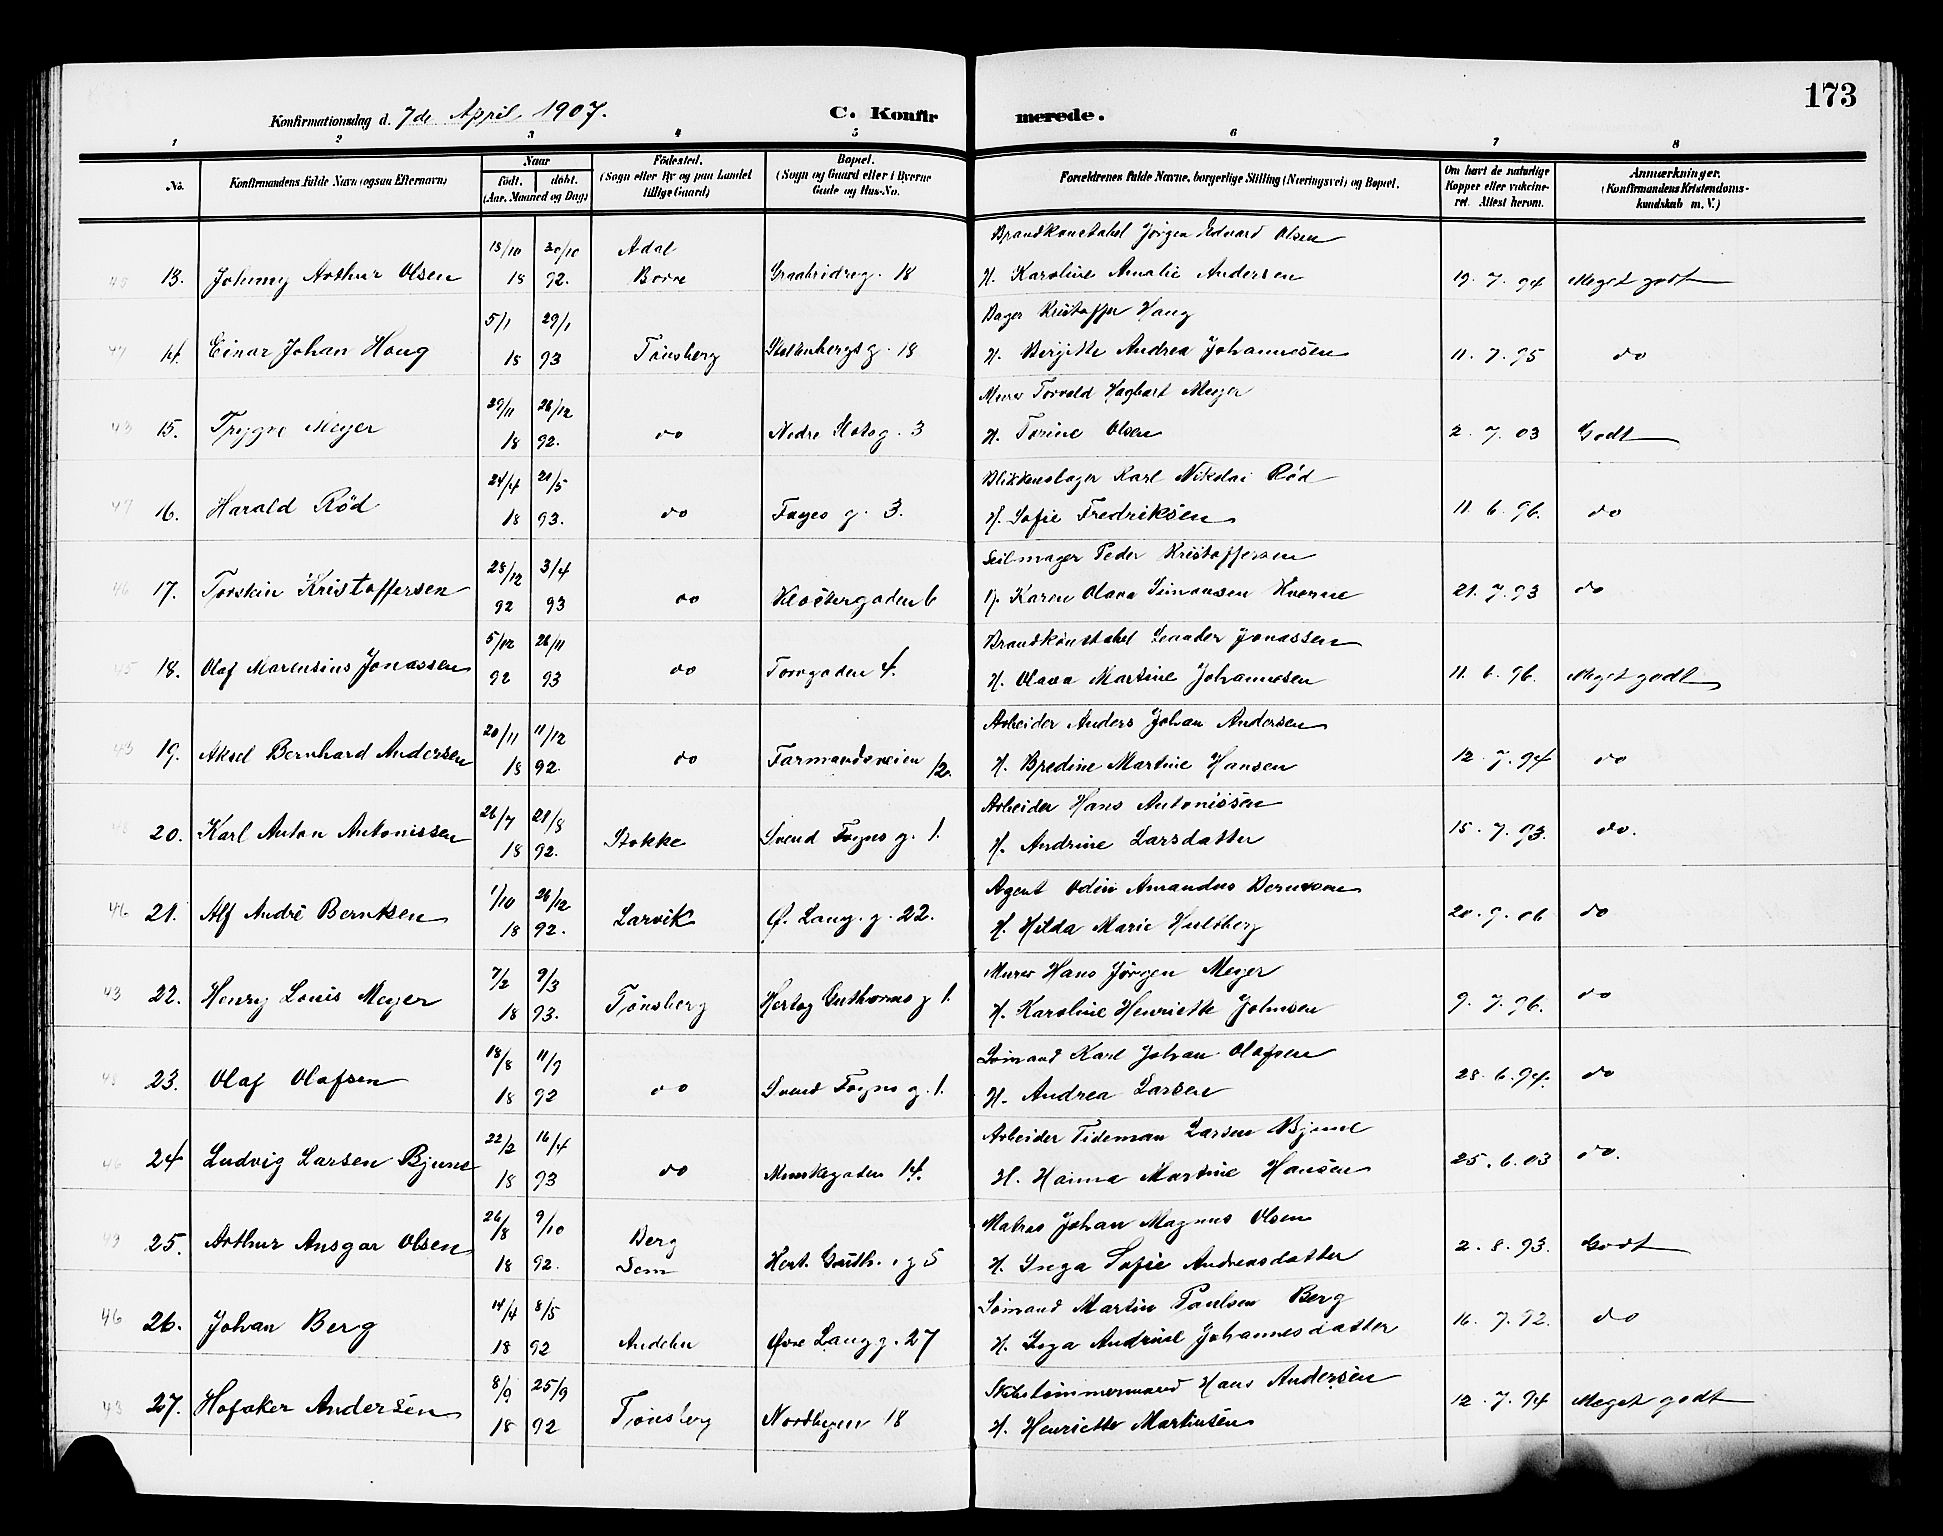 173
Konfirmationsdag d. 7de April 1907.
C. Konfirmerede.
1 2 3 4 5 6 7 8
No. Konfirmandens fulde Navn (ogsaa Efternavn) Naar født. døbt. (Aar, Maaned og Dag) Fødested. (Sogn eller By og paa Landet tillige Gaard) Bopæl. (Sogn og Gaard eller i Byerne Gade og Hus-No. Forældrenes fulde Navne, borgerlige Stilling (Næringsvei) og Bopæl. Om havt de naturlige Kopper eller vakcineret. Attest herom. Anmærkninger. (Konfirmandens Kristendomskundskab m. V.)
18/10 30/10 Adal Brandkonstabel Jörgen Edvard Olsen
45 13. Johnny Arthur Olsen 18 92. Borre Graabrödreg. 18 H. Karoline Amalie Andersen 19. 7. 94 Meget godt
5/1 29/1 Bager Kristoffer Haug
47 14. Einar Johan Haug 18 93 Tönsberg Stoltenbergsg. 18 H. Bergitte Andrea Johannesen 11. 7. 95 do
29/11 26/12 Murer Torvald Hagbart Meyer
43 15. Trygve Meyer 18 92. do Nedre Slotsg. 3 H. Torine Olsen 2. 7. 03 Godt
24/4 21/5 Blikkenslager Karl Nikolai Röd
47 16. Harald Röd 18 93. do Fayes g. 3. H. Sofie Fredriksen 11. 6. 96. do
28/12 3/4 Seilmager Peder Kristoffersen
46 17. Torstein Kristoffersen 92 93 do Klostergaden 6 H. Karen Olava Simonsen Hverne 21. 7. 93 do
5/12 26/11 Brandkonstabel Leander Jonassen
45 18. Olaf Marensius Jonassen 92 93 do Torvgaden 4. H. Olava Martine Johannesen 11. 6. 96. Meget godt
20/11 11/12 Arbeider Anders Johan Andersen
43 19. Aksel Bernhard Andersen 18 92. do Farmandsveien 12. H. Bredine Martine Hansen 12. 7. 94 do
26/7 21/8 Arbeider Hans Antonissen
48 20. Karl Anton Antonissen 18 92. Stokke Svend Foyns g. 1. H. Andrine Larsdatter 15. 7. 93. do.
1/10 26/12 Agent Odin Amandus Berntsen
46 21. Alf André Berntsen 18 92. Larvik Ø. Lang. g. 22. H. Hilda Marie Hulsberg 20. 9. 06 do
7/2 9/3 Murer Hans Jörgen Meyer
43 22. Henry Louis Meyer 18 93. Tönsberg Hertog Guthorms g 1. H. Karoline Henriette Johnsen 9. 7. 96. do
18/8 11/9 Sömand Karl Johan Olafsen
48 23. Olaf Olafsen 18 92 do Svend Foyns g. 1. H. Andrea Larsen 28. 6. 94. do
22/2 16/4 Arbeider Tideman Larsen Bjune
46 24 Ludvig Larsen Bjune 18 93 do Munkegaden 14. H. Hanna Martine Hansen 25. 6. 03 do.
26/8 9/10 Berg Matros Johan Magnus Olsen
43 25. Arthur Ansgar Olsen 18 92. Sem Hert. Guth. g 5 H. Inga Sofie Andreasdatter 2. 8. 93. Godt
14/4 8/5 Sömand Martin Paulsen Berg
46 26. Johan Berg 18 92 Andebu Øvre Lang g. 27 H. Inga Andrine Johannesdatter 16. 7. 92. do
8/9 25/9 Skibstömmermand Hans Andersen
43 27. Hofaker Andersen 18 92 Tönsberg Nordbyen 18 H. Henriette Martinsen 12. 7. 94 Meget godt